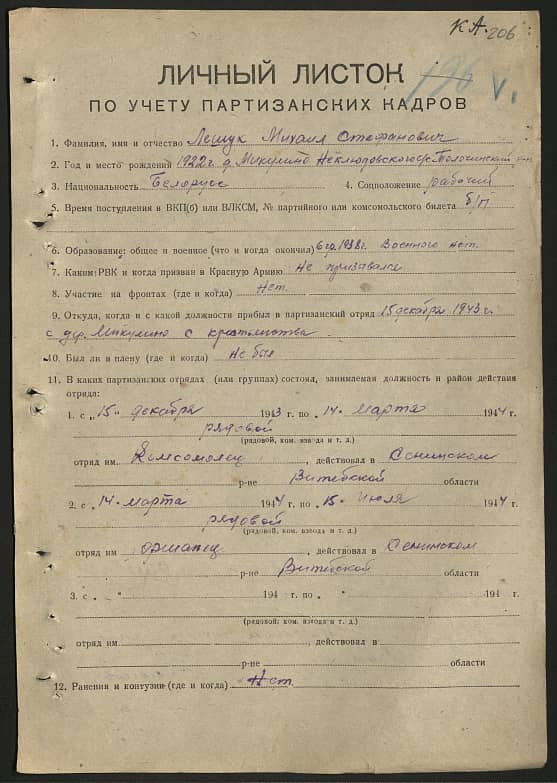 КА. 206
ЛИЧНЫЙ ЛИСТОК 196 V.
ПО УЧЕТУ ПАРТИЗАНСКИХ КАДРОВ
1. Фамилия, имя и отчество Лещук Михаил Стефанович
2. Год и место рождения 1922 г. д. Микулино
3. Национальность Белорусс 4. Соцположение рабочий
5. Время поступления в ВКП(б) или ВЛКСМ, № партийного или комсомольского билета б/п
6. Образование: общее и военное (что и когда окончил) 6 гр. 1938 г. Военного нет.
7. Каким РВК и когда призван в Красную Армию Не призывался
8. Участие на фронтах (где и когда) Нет.
9. Откуда, когда и с какой должности прибыл в партизанский отряд 15 декабря 1943 г.
с дер. Микулино с крестьянства
10. Был ли в плену (где и когда) Не был
11. В каких партизанских отрядах (или группах) состоял, занимаемая должность и район действия
отряда:
1. с „15" декабря 1943 г. по „14" марта 1944 г.
рядовой
(рядовой, ком. взвода и т. д.)
отряд им Комсомолец, действовал в Сеннинском
р-не Витебской области
2. с „14" марта 1944 г. по „15" июля 1944 г.
рядовой
(рядовой, ком. взвода и т. д.)
отряд им , действовал в Сеннинском
р-не Витебской области
3. с „ " 194 г. по „ " 194 г.
(рядовой, ком. взвода и т. д.)
отряд им. , действовал в
р-не области
12. Ранения и контузии (где и когда) Нет